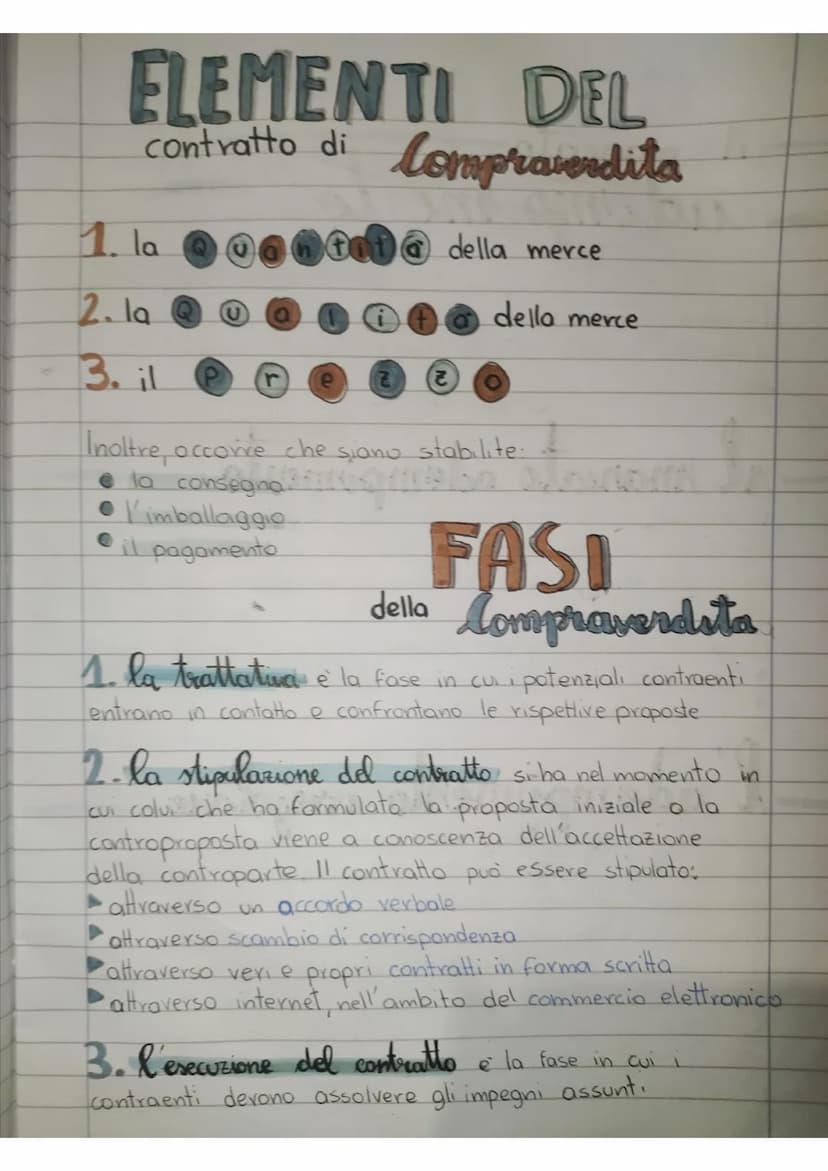 ELEMENTI DEL
contratto di Compravendita
1. la Quantità della merce
2. la Qualità della merce
3. il Prezzo
Inoltre, occorre che siano stabilite:
• la consegna
• l'imballaggio
• il pagamento
FASI
della Compravendita
1. la trattativa è la fase in cui i potenziali contraenti
entrano in contatto e confrontano le rispettive proposte
2. la stipulazione del contratto si ha nel momento in
cui colui che ha formulato la proposta iniziale o la
controproposta viene a conoscenza dell'accettazione
della controparte. Il contratto può essere stipulato:
▶ attraverso un accordo verbale
▶ attraverso scambio di corrispondenza
▶ attraverso veri e propri contratti in forma scritta
▶ attraverso internet, nell'ambito del commercio elettronico
3. l'esecuzione del contratto è la fase in cui i
contraenti devono assolvere gli impegni assunti.